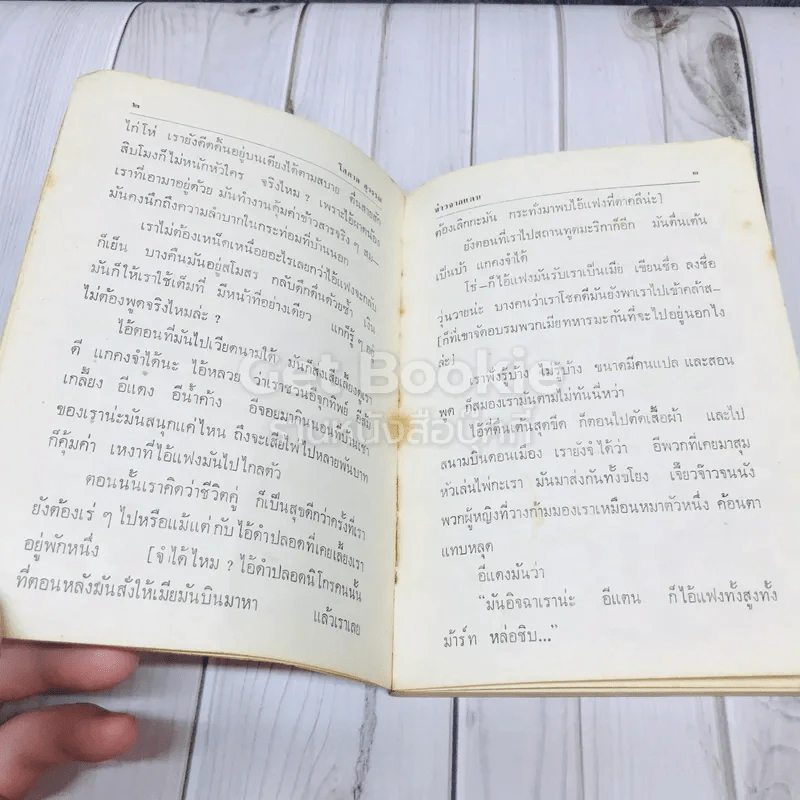 ๒
โสภาค สุวรรณ
ไก่โห่ เรายังดีดดิ้นอยู่บนเตียงได้ตามสบาย ตื่นสายสัก
สิบโมงก็ไม่หนักหัวใคร จริงไหม ? เพราะไอ้ผาดน้อง
เราที่เอามาอยู่ด้วย มันทำงานคุ้มค่าข้าวสารจริง ๆ
มันคงนึกถึงความลำบากในกระท่อมที่บ้านนอก
เราไม่ต้องเหน็ดเหนื่อยอะไรเลยกว่าไอ้แฟงจะกลับ
ก็เย็น บางคืนมันอยู่สโมสร กลับดึกดื่นด้วยซ้ำ เงิน
มันก็ให้เราใช้เต็มที่ มีหน้าที่อย่างเดียว แกก็รู้ ๆ อยู่
ไม่ต้องพูดจริงไหมล่ะ ?
ไอ้ตอนที่มันไปเวียดนามใต้ มันก็ส่งเสียเลี้ยงดูเรา
ดี แกคงจำได้นะ ไอ้หลวย ว่าเราชวนอีจุกทิพย์ อีส้ม
เกลี้ยง อีแดง อีน้ำค้าง อีจอยมากินนอนที่บ้านเขา
ของเราน่ะมันสนุกแค่ไหน ถึงจะเสียไพ่ไปหลายพันบาท
ก็คุ้มค่า เหงาที่ไอ้แฟงมันไปไกลตัว
ตอนนั้นเราคิดว่าชีวิตคู่ ก็เป็นสุขดีกว่าครั้งที่เรา
ยังต้องเร่ ๆ ไปหรือแม้แต่ กับ ไอ้ดำปลอดที่เคยเลี้ยงเรา
อยู่พักหนึ่ง [จำได้ไหม ? ไอ้ดำปลอดนิโกรคนนั้น
ที่ตอนหลังมันสั่งให้เมียมันบินมาหา แล้วเราเลย
๓
ข้าวจาลแสน
ต้องเลิกกะมัน กระทั่งมาพบไอ้แฟงที่ตาคลีน่ะ]
ยังตอนที่เราไปสถานทูตมะริกาก็อีก มันตื่นเต้น
เป็นบ้า แกคงจำได้
โช่-ก็ไอ้แฟงมันรับเราเป็นเมีย เขียนชื่อ ลงชื่อ
วุ่นวายน่ะ บางคนว่าเราโชคดีมันยังพาเราไปเข้าคล้าส-
[ก็ที่เขาจัดอบรมพวกเมียทหารมะกันที่จะไปอยู่นอกไง
ล่ะ]
เราฟังรู้บ้าง ไม่รู้บ้าง ขนาดมีคนแปล และสอน
พูด ก็สมองเรามันตามไม่ทันนี่หว่า
ไอ้ที่ตื่นเต้นสุดขีด ก็ตอนไปตัดเสื้อผ้า และไป
สนามบินดอนเมือง เรายังจำได้ว่า อีพวกที่เคยมาสุม
หัวเล่นไพ่กะเรา มันมาส่งกันทั้งขโยง เจี๊ยวจ๊าวจนนัง
พวกผู้หญิงที่วางก้ามมองเราเหมือนหมาตัวหนึ่ง ค้อนตา
แทบหลุด
อีแดงมันว่า
“มันอิจฉาเราน่ะ อีแตน ก็ไอ้แฟงทั้งสูงทั้ง
ม้าร์ท หล่อชิบ...”
Get Bookie
ร้านหนังสือบุคกี้